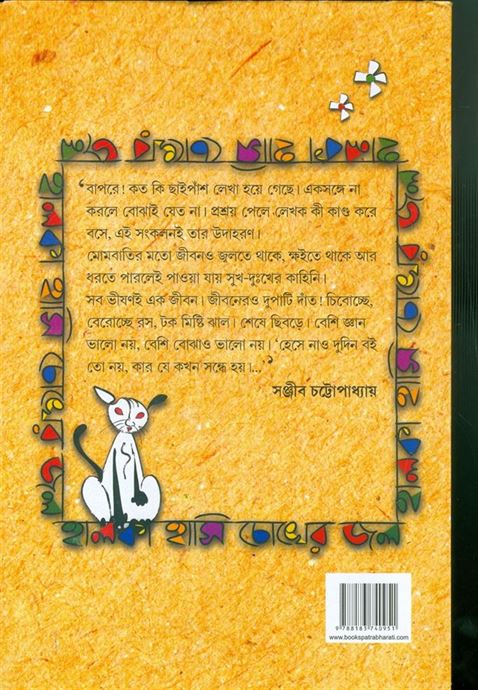 ‘বাপরে! কত কি ছাইপাঁশ লেখা হয়ে গেছে। একসঙ্গে না
করলে বোঝাই যেত না। প্রশ্রয় পেলে লেখক কী কাণ্ড করে
বসে, এই সংকলনই তার উদাহরণ।
মোমবাতির মতো জীবনও জ্বলতে থাকে, ক্ষইতে থাকে আর
ধরতে পারলেই পাওয়া যায় সুখ-দুঃখের কাহিনি।
সব ভীষণই এক জীবন। জীবনেরও দুপাটি দাঁত। চিবোচ্ছে,
বেরোচ্ছে রস, টক মিষ্টি ঝাল। শেষে ছিবড়ে। বেশি জ্ঞান
ভালো নয়, বেশি বোঝাও ভালো নয়। ‘হেসে নাও দুদিন বই
তো নয়, কার যে কখন সন্ধে হয়।...’
সঞ্জীব চট্টোপাধ্যায়
হালকা হাসি চোখের জল
9 788183 740951
www.bookspatrabharati.com